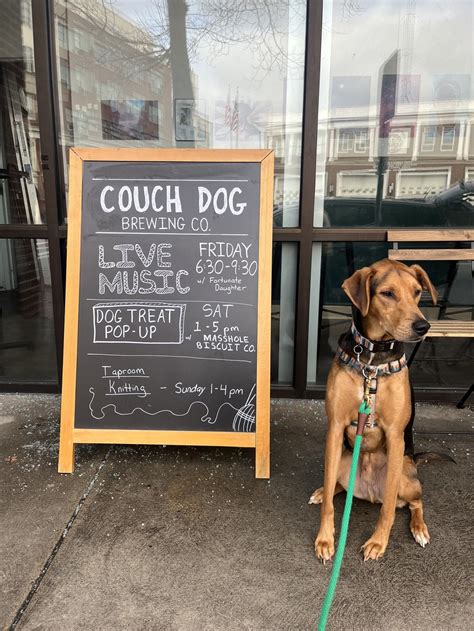 COUCH DOG
BREWING CO.
LIVE MUSIC
FRIDAY
6:30-9:30
w/ Fortunate Daughter
DOG TREAT
POP-UP
SAT
1-5pm
MASSHOLE
BISCUIT CO.
Taproom
Knitting - Sunday 1-4pm